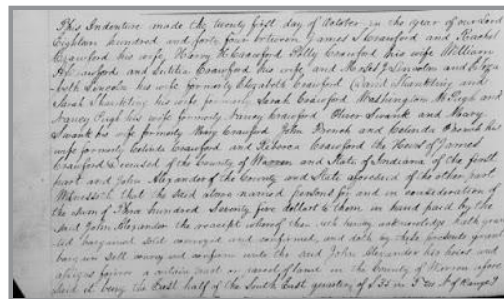 This Indenture made the twenty first day of October in the year of our Lord
Eighteen hundred and forty four between James S Crawford and Rachel
Crawford his wife, Harvey H Crawford Polly Crawford his wife William
Crawford and Letitia Crawford his wife, and Moses J Lincoln and
Lincoln his wife formerly Elizabeth Crawford David Shankling and
Sarah Shankling his wife formerly Sarah Crawford Washington Pugh and
Nancy Pugh his wife formerly Nancy Crawford Oliver Swank and Mary
Swank his wife formerly Mary Crawford John French and Celinda French his
wife formerly Celinda Crawford and Rebecca Crawford the Heirs of James
Crawford Deceased of the County of Warren and State of Indiana of the first
part and John Alexander of the County and State aforesaid of the other part,
Witnesseth that the said above named persons for and in consideration of
the sum of Three hundred Seventy five dollars to them in hand paid by the
said John Alexander the receipt whereof they hereby acknowledge hath gran
ted bargained sold conveyed and confirmed, and doth by these presents grant
bargain sell convey and confirm unto the said John Alexander his heirs and
assigns forever a certain tract or parcel of land in the County of Warren afore
said it being the East half of the South East quarter of S 35 in T N of Range